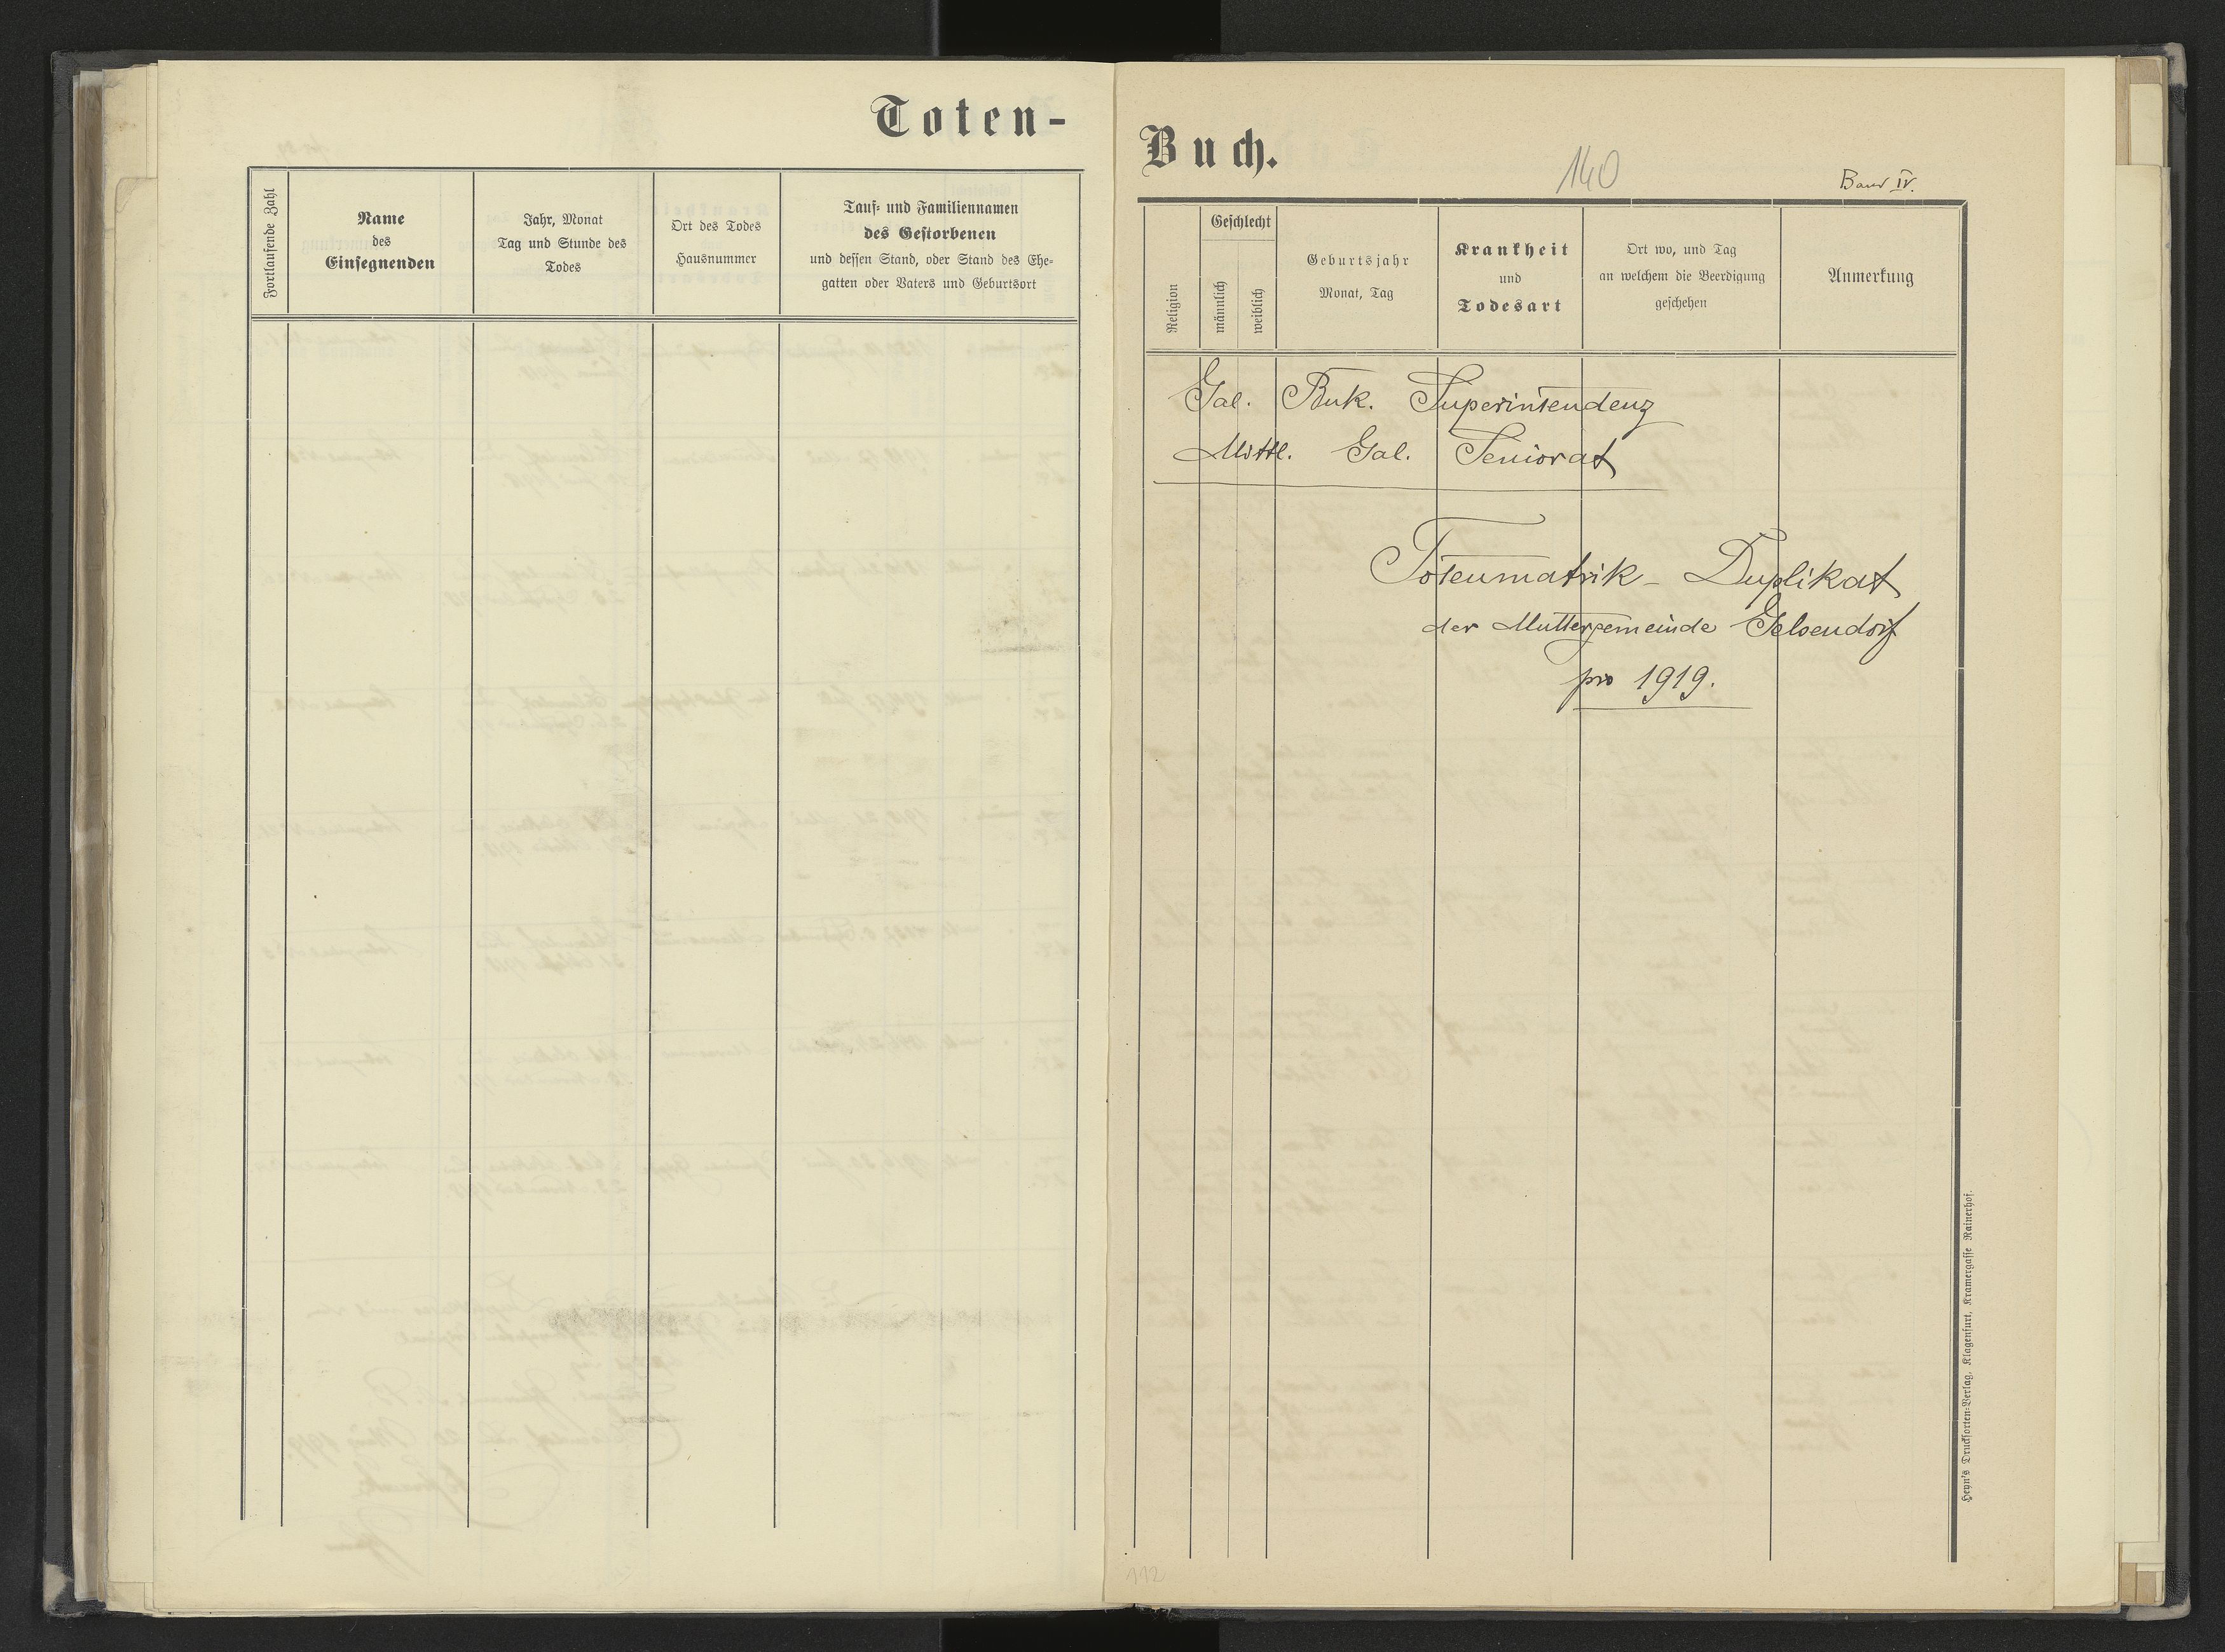 Toten-
Fortlaufende Zahl
Name
des
Einsegnenden
Jahr, Monat
Tag und Stunde des
Todes
Ort des Todes
Hausnummer
Tauf- und Familiennamen
des Gestorbenen
und dessen Stand, oder Stand des Ehe-
gatten oder Vaters und Geburtsort
Buch.
140
Band IV.
Religion
Geschlecht
männlich
weiblich
Geburtsjahr
Monat, Tag
Krankheit
und
Todesart
Ort wo, und Tag
an welchem die Beerdigung
geschehen
Anmerkung
Gal. Buk. Superintendenz
Mittl. Gal. Seniorat
Totenmatrik - Duplikat
der Muttergemeinde Gelsendorf
pro 1919.
Heyn's Drucksorten-Verlag, Klagenfurt, Kramergasse Rainerhof.
112